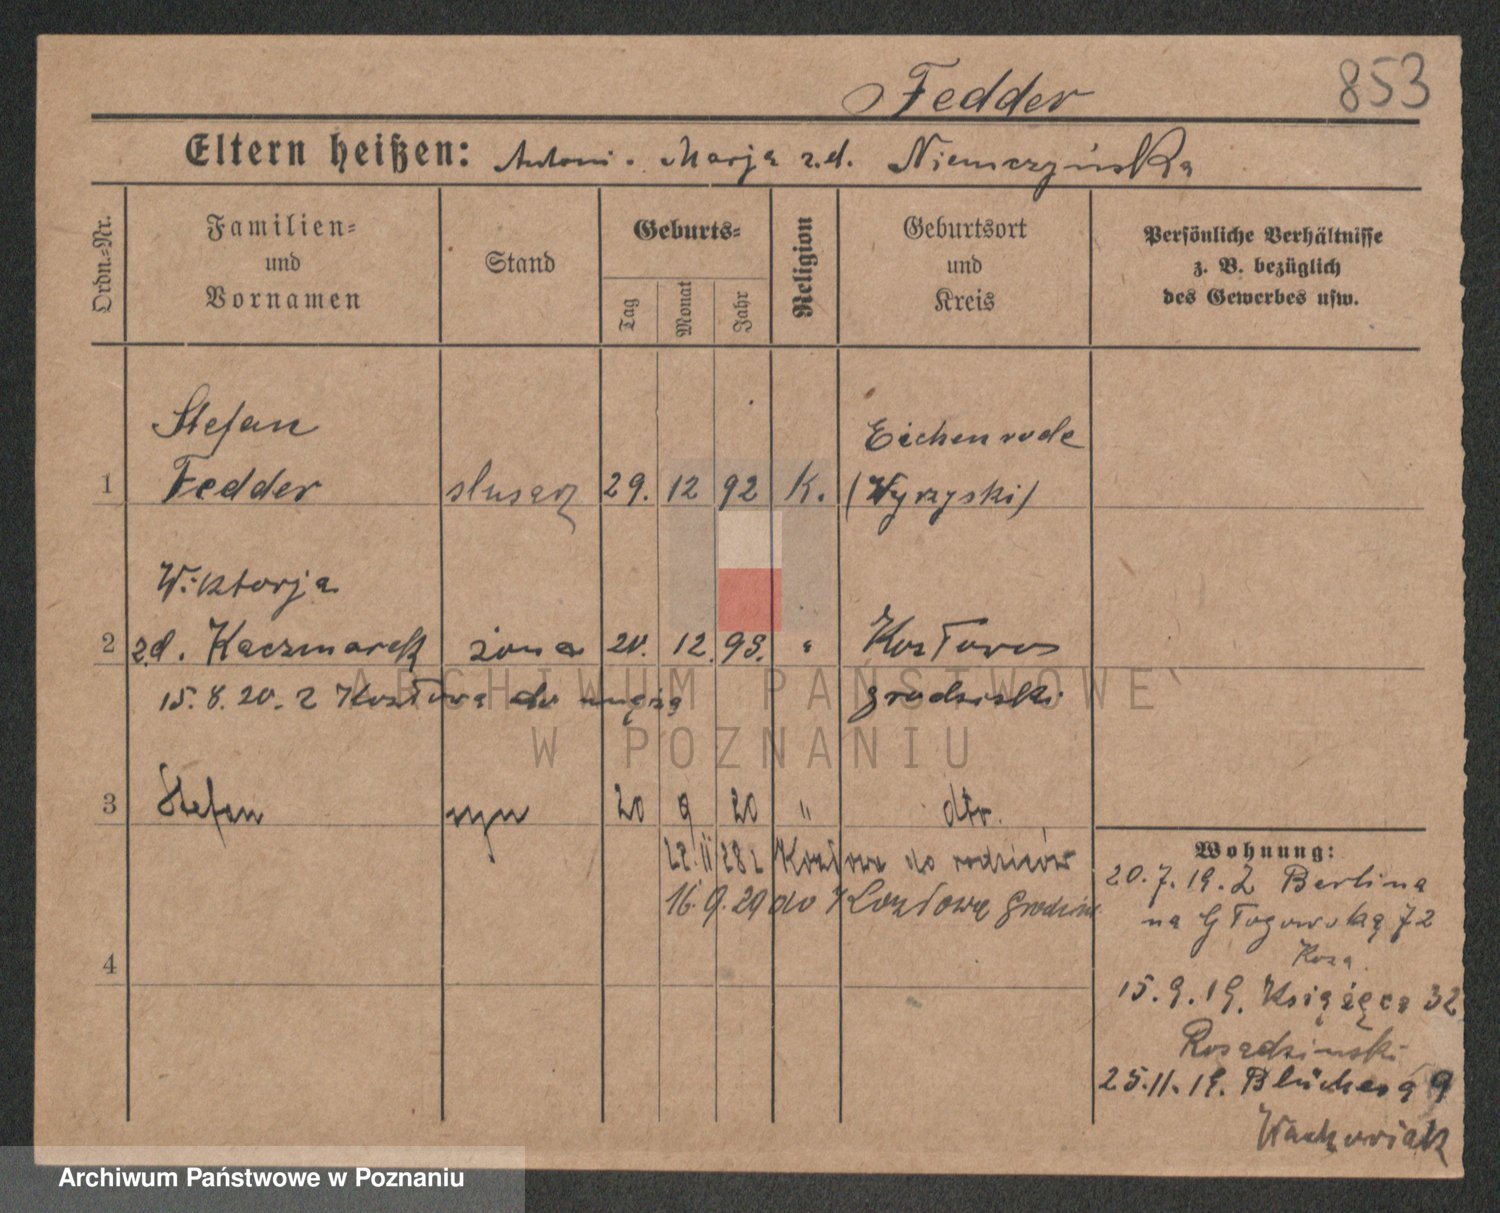 Fedder
853
Eltern heißen: Antoni. Marja z.d. Niemczyńska
Ordn.-Nr.
Familien- und Vornamen
Stand
Geburts-
Tag
Monat
Jahr
Religion
Geburtsort und Kreis
Persönliche Verhältnisse
z. B. bezüglich
des Gewerbes usw.
Stefan
Eichenrode
1 Fedder slusarz 29. 12 92 K. (Wyrzyski)
Wiktorja
2 z.d. Kaczmarek żona 20. 12. 93. " Kozłowo
15.8.20. z Kozłowa do męża grodziski
3 Stefan syn 20 9 20 " dto.
22.11 28 z Kozłowa do rodziców
16.9.29 do Kozłowa Grodzisk
4
Wohnung:
20.7.19. Z Berlina
na Głogowską 72
Koza.
15.9.19. Książęca 32
Rosadzinski
25.11.19. Blüchera 9
Wachowiak
ARCHIWUM PAŃSTWOWE
W POZNANIU
Archiwum Państwowe w Poznaniu